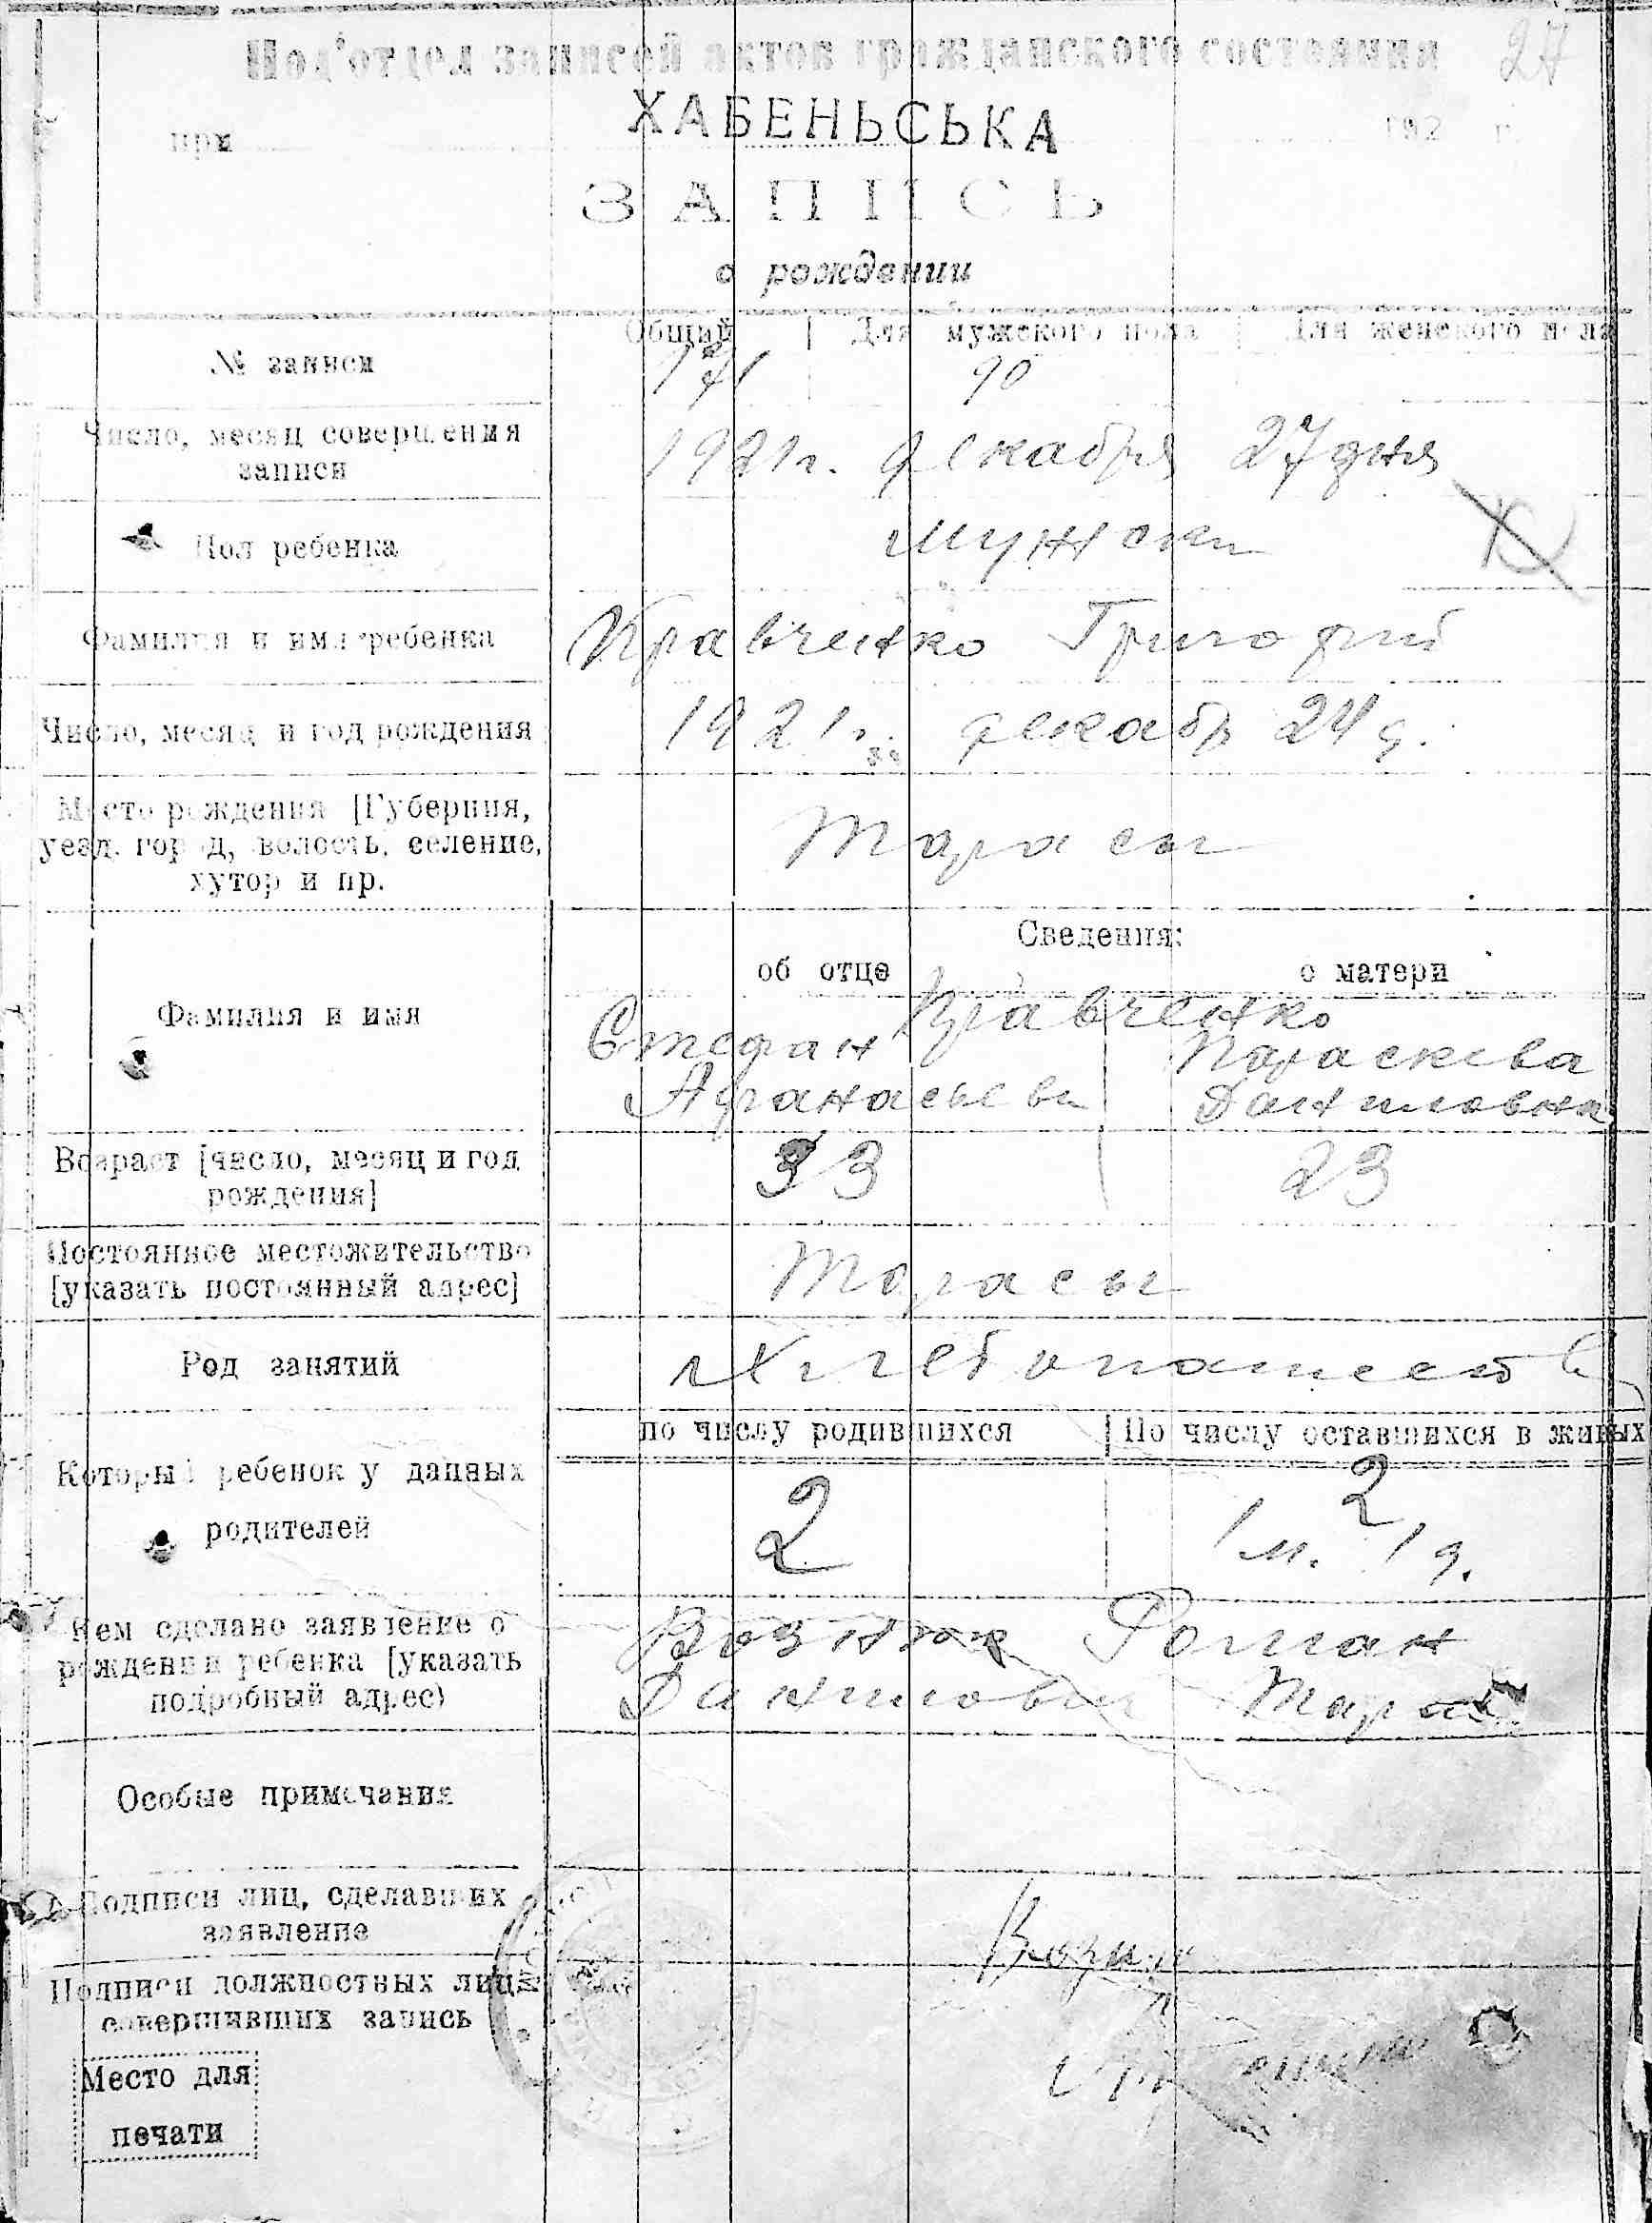 Под'отдел записей актов гражданского состояния
27
при ХАБЕНЬСЬКА 192 г.
ЗАПИСЬ
о рождении
Общий Для мужского пола Для женского пола
№ записи 171 90
Число, месяц совершения
записи
1921 г. декабря 27 дня
Пол ребенка мужски
Фамилия и имя ребенка Кравченко Григорий
Число, месяц и год рождения 1921 г. декабр 24 д.
Место рождения [Губерния,
уезд, город, волость, селение,
хутор и пр.
Тарасы
Сведения:
об отце о матери
Фамилия и имя
Кравченко
Стефан Параскева
Афанасьеви Даниловна
Возраст [число, месяц и год
рождения]
33 23
Постоянное местожительство
[указать постоянный адрес]
Тарасы
Род занятий Хлебопашеств
по числу родившихся По числу оставшихся в живых
Который ребенок у данных
родителей
2 2
1 м. 1 д.
Кем сделано заявление о
рождении ребенка [указать
подробный адрес)
Возняк Роман
Данилович
Особые примечания
Подписи лиц, сделавших
заявление
Подписи должностных лиц
совершивших запись
Место для
печати